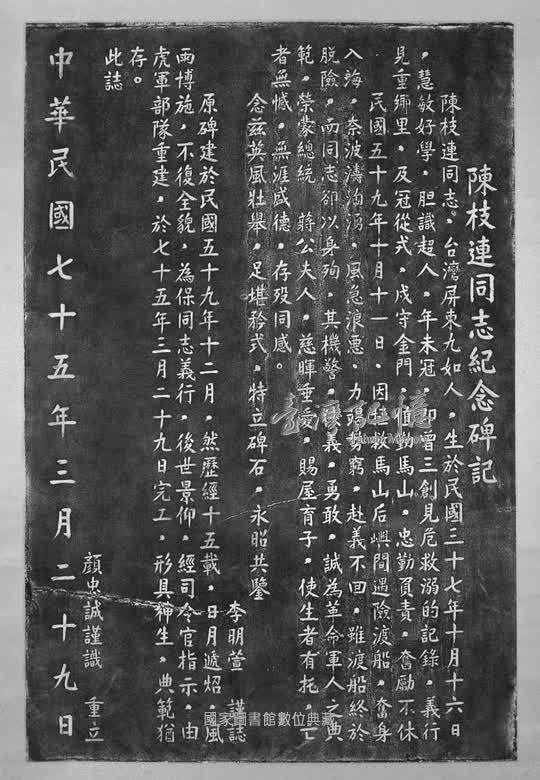 陳枝連同志紀念碑記
陳枝連同志，台灣屏東九如人，生於民國三十七年十月十六日
，慧敏好學，胆識超人，年未冠，即曾三創見危救溺的記錄，義行
見重鄉里，及冠從戎，戍守金門，值勤馬山，忠勤負責，奮勵不休
民國五十九年十月十一日，因拯救馬山后嶼間遇險渡船，奮身
入海，奈波濤洶湧，風急浪惡，力竭勢窮，赴義不回，雖渡船終於
脫險，而同志卻以身殉，其機警，俠義，勇敢，誠為革命軍人之典
範，榮蒙總統　蔣公夫人，慈暉垂愛，賜屋育子，使生者有托，亡
者無憾，無涯感德，存歿同感。
念茲英風壯舉，足堪矜式，特立碑石，永昭共鑒
李明萱　謹誌
原碑建於民國五十九年十二月，然歷經十五載，日月遞炤，風
雨博施，不復全貌，為保同志義行，後世景仰，經司令官指示，由
虎軍部隊重建，於七十五年三月二十九日完工，形具神生，典範猶
存。
此誌
顏忠誠謹識　重立
中華民國七十五年三月二十九日
國家圖書館數位典藏